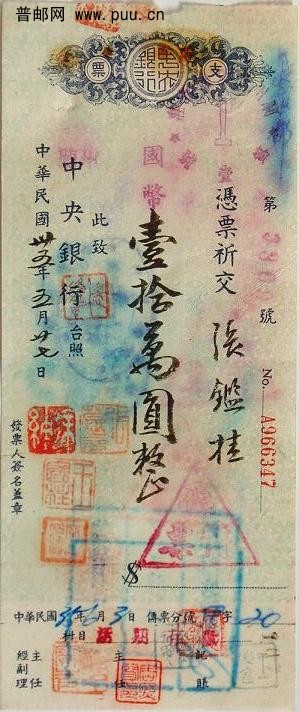 普邮网 www.puu.cn
支票
中央銀行
第 號
No. A966347
憑票祈交 張鑑桂
國幣 壹拾萬圓整
此致
中央銀行 台照
中華民國卅五年五月廿七日
發票人簽名蓋章
$
中華民國35年6月3日 傳票分號 字 20
科目
經副理
主任
主任
記賬